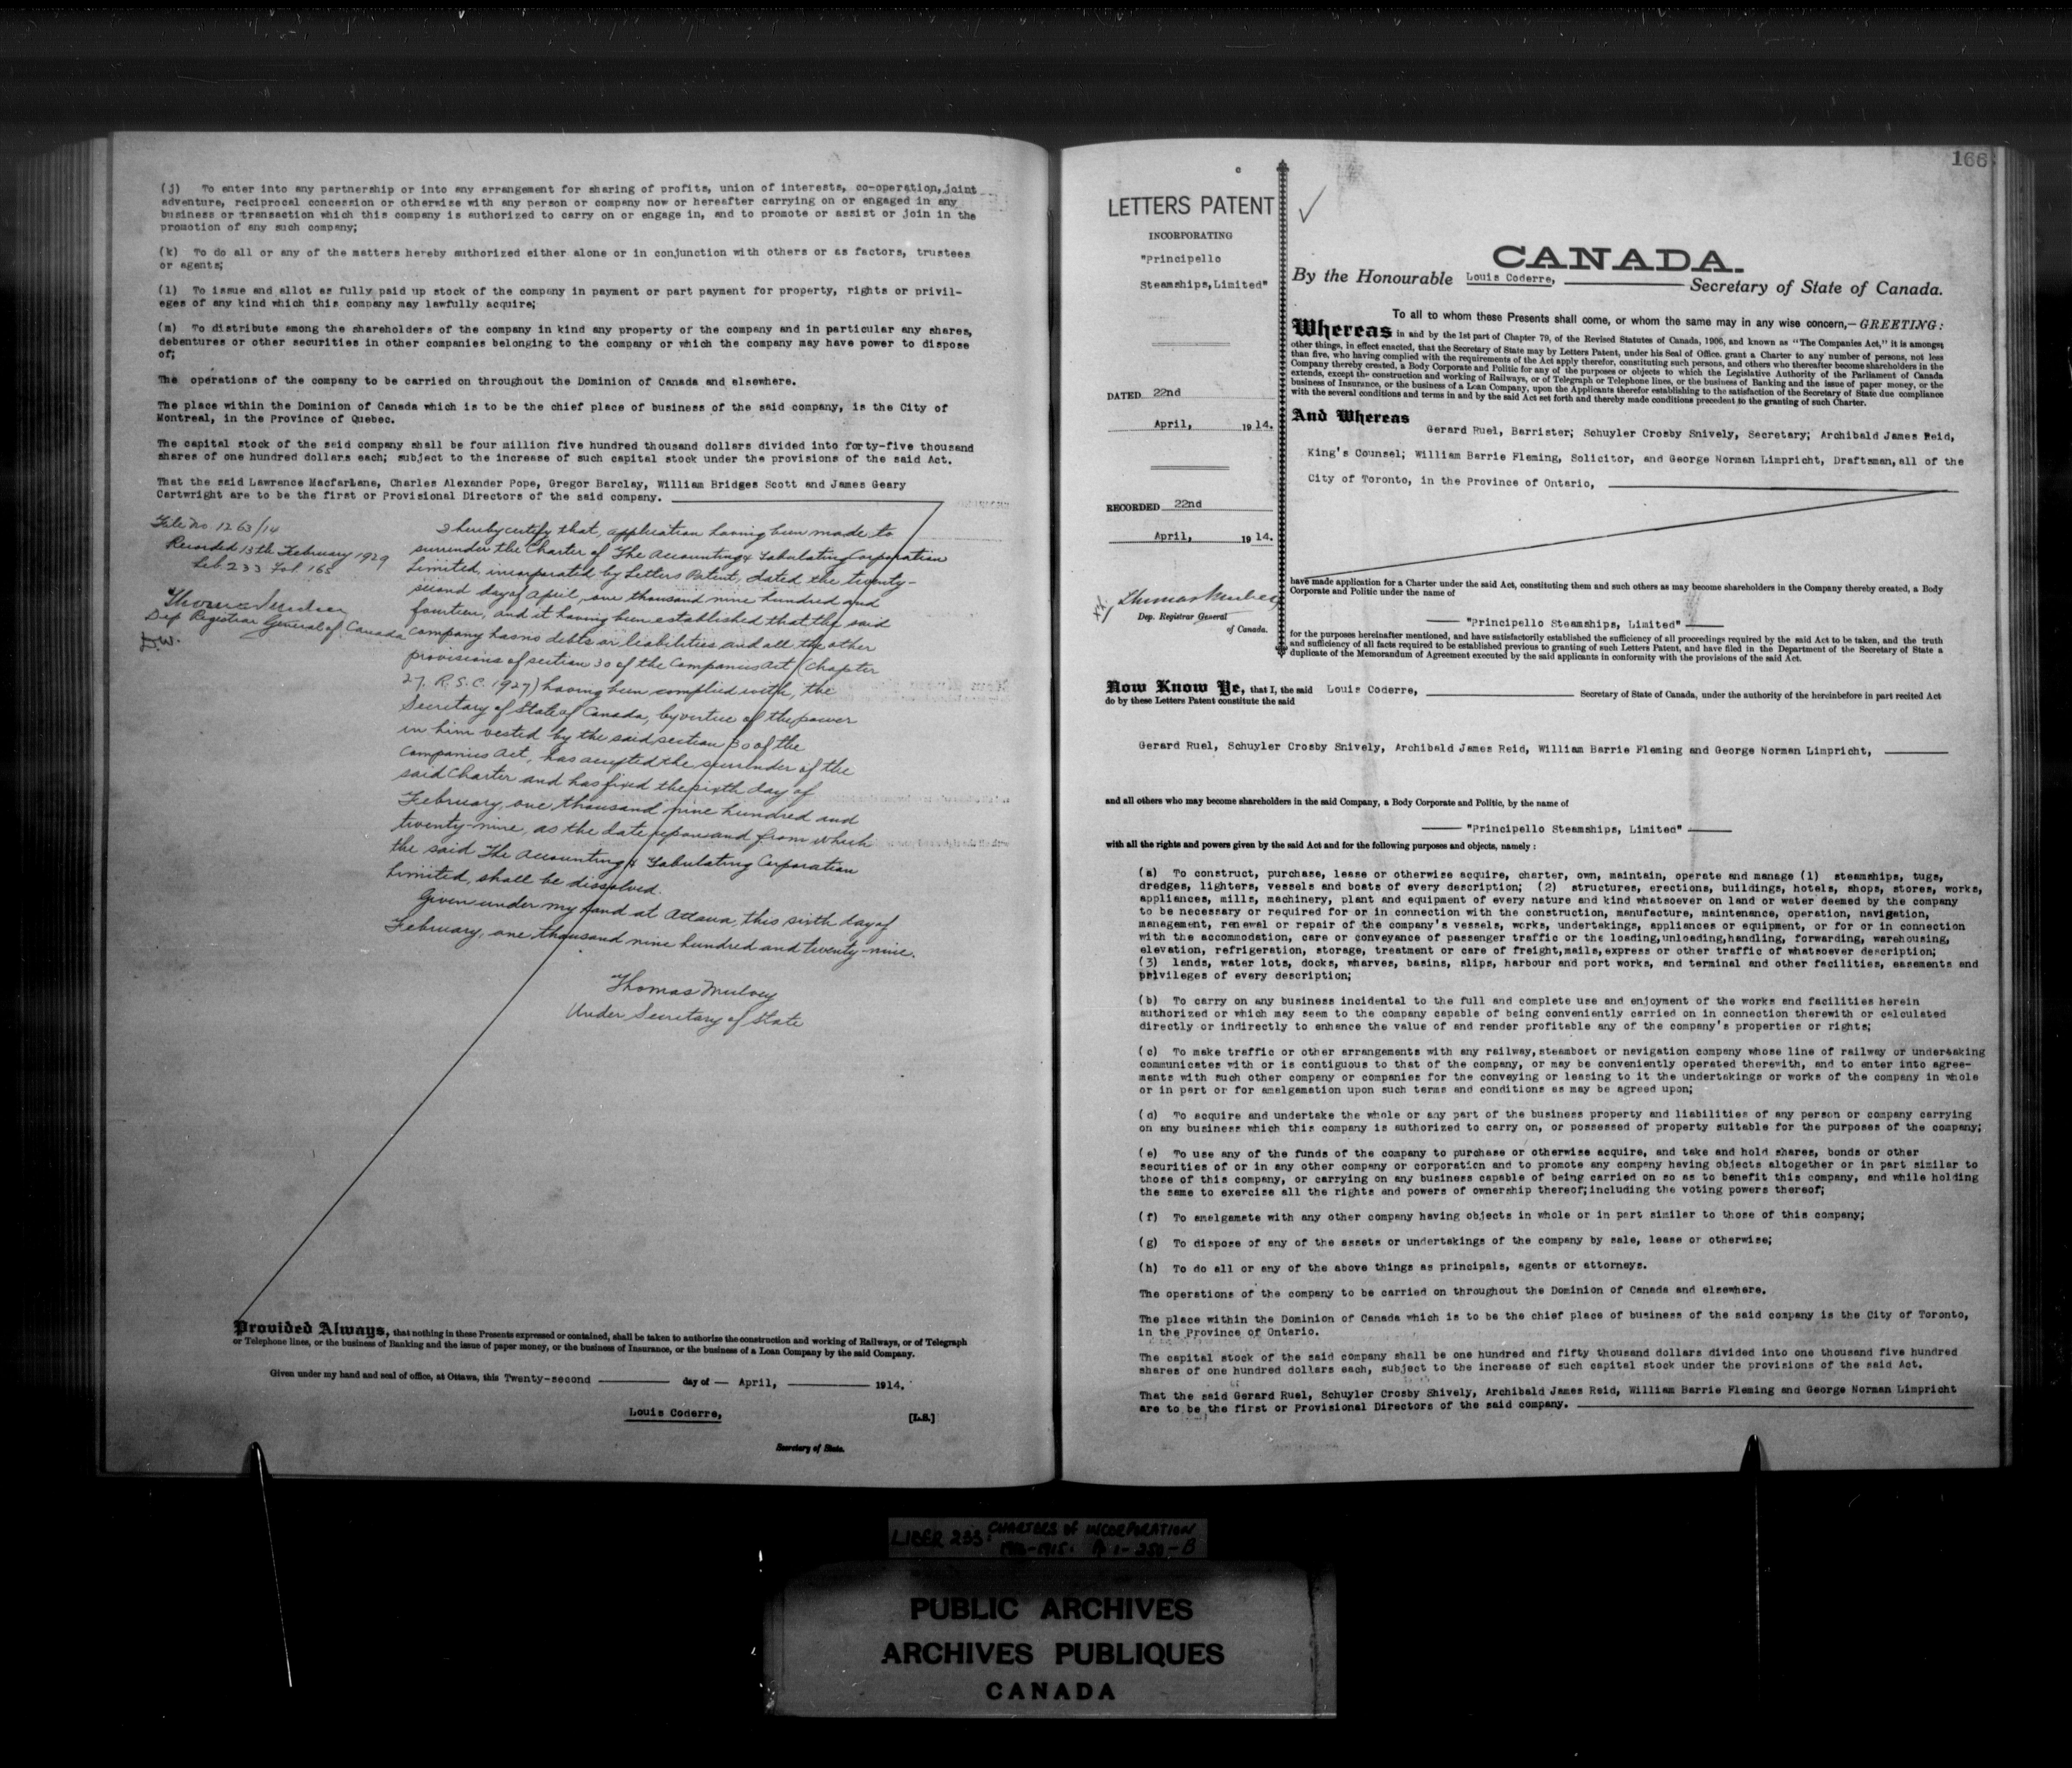 (j) To enter into any partnership or into any arrangement for sharing of profits, union of interests, co-operation, joint
adventure, reciprocal concession or otherwise with any person or company now or hereafter carrying on or engaged in any
business or transaction which this company is authorized to carry on or engage in, and to promote or assist or join in the
promotion of any such company;
(k) To do all or any of the matters hereby authorized either alone or in conjunction with others or as factors, trustees
or agents;
(l) To issue and allot as fully paid up stock of the company in payment or part payment for property, rights or privil-
eges of any kind which this company may lawfully acquire;
(m) To distribute among the shareholders of the company in kind any property of the company and in particular any shares,
debentures or other securities in other companies belonging to the company or which the company may have power to dispose
of;
The operations of the company to be carried on throughout the Dominion of Canada and elsewhere.
The place within the Dominion of Canada which is to be the chief place of business of the said company, is the City of
Montreal, in the Province of Quebec.
The capital stock of the said company shall be four million five hundred thousand dollars divided into forty-five thousand
shares of one hundred dollars each; subject to the increase of such capital stock under the provisions of the said Act.
That the said Lawrence Macfarlane, Charles Alexander Pope, Gregor Barclay, William Bridges Scott and James Geary
Cartwright are to be the first or Provisional Directors of the said company.
File No 1263/14
Recorded 13th February 1929
Lib. 233 Fol. 165
Thomas Mulvey
Dep Registrar General of Canada
I hereby certify that, application having been made to
surrender the Charter of The Accounting & Tabulating Corporation
Limited, incorporated by Letters Patent, dated the twenty-
second day of April, one thousand nine hundred and
fourteen, and it having been established that the said
company has no debts or liabilities and all the other
provisions of section 30 of the Companies Act (Chapter
27. R.S.C. 1927) having been complied with, the
Secretary of State of Canada, by virtue of the power
in him vested by the said section 30 of the
Companies Act, has accepted the surrender of the
said Charter and has fixed the sixth day of
February, one thousand nine hundred and
twenty-nine, as the date upon and from which
the said The Accounting & Tabulating Corporation
Limited, shall be dissolved.
Given under my hand at Ottawa, this sixth day of
February, one thousand nine hundred and twenty-nine.
Thomas Mulvey
Under Secretary of State
Provided Always, that nothing in these Presents expressed or contained, shall be taken to authorize the construction and working of Railways, or of Telegraph
or Telephone lines, or the business of Banking and the issue of paper money, or the business of Insurance, or the business of a Loan Company by the said Company.
Given under my hand and seal of office, at Ottawa, this Twenty-second day of April, 1914.
Louis Coderre, [L.S.]
Secretary of State.
166
LETTERS PATENT
INCORPORATING
"Principello
Steamships, Limited"
DATED 22nd
April, 1914.
RECORDED 22nd
April, 1914.
Thomas Mulvey
Dep. Registrar General
of Canada.
CANADA.
By the Honourable Louis Coderre, Secretary of State of Canada.
To all to whom these Presents shall come, or whom the same may in any wise concern,—GREETING:
Whereas in and by the 1st part of Chapter 79, of the Revised Statutes of Canada, 1906, and known as "The Companies Act," it is amongst
other things, in effect enacted, that the Secretary of State may by Letters Patent, under his Seal of Office, grant a Charter to any number of persons, not less
than five, who having complied with the requirements of the Act apply therefor, constituting such persons, and others who thereafter become shareholders in the
Company thereby created, a Body Corporate and Politic for any of the purposes or objects to which the Legislative Authority of the Parliament of Canada
extends, except the construction and working of Railways, or of Telegraph or Telephone lines, or the business of Banking and the issue of paper money, or the
business of Insurance, or the business of a Loan Company, upon the Applicants therefor establishing to the satisfaction of the Secretary of State due compliance
with the several conditions and terms in and by the said Act set forth and thereby made conditions precedent to the granting of such Charter.
And Whereas
Gerard Ruel, Barrister; Schuyler Crosby Snively, Secretary; Archibald James Reid,
King's Counsel; William Barrie Fleming, Solicitor, and George Norman Limpricht, Draftsman, all of the
City of Toronto, in the Province of Ontario,
have made application for a Charter under the said Act, constituting them and such others as may become shareholders in the Company thereby created, a Body
Corporate and Politic under the name of
"Principello Steamships, Limited"
for the purposes hereinafter mentioned, and have satisfactorily established the sufficiency of all proceedings required by the said Act to be taken, and the truth
and sufficiency of all facts required to be established previous to granting of such Letters Patent, and have filed in the Department of the Secretary of State a
duplicate of the Memorandum of Agreement executed by the said applicants in conformity with the provisions of the said Act.
Now Know Ye, that I, the said Louis Coderre, Secretary of State of Canada, under the authority of the hereinbefore in part recited Act
do by these Letters Patent constitute the said
Gerard Ruel, Schuyler Crosby Snively, Archibald James Reid, William Barrie Fleming and George Norman Limpricht,
and all others who may become shareholders in the said Company, a Body Corporate and Politic, by the name of
"Principello Steamships, Limited"
with all the rights and powers given by the said Act and for the following purposes and objects, namely :
(a) To construct, purchase, lease or otherwise acquire, charter, own, maintain, operate and manage (1) steamships, tugs,
dredges, lighters, vessels and boats of every description; (2) structures, erections, buildings, hotels, shops, stores, works,
appliances, mills, machinery, plant and equipment of every nature and kind whatsoever on land or water deemed by the company
to be necessary or required for or in connection with the construction, manufacture, maintenance, operation, navigation,
management, renewal or repair of the company's vessels, works, undertakings, appliances or equipment, or for or in connection
with the accommodation, care or conveyance of passenger traffic or the loading,unloading,handling, forwarding, warehousing,
elevation, refrigeration, storage, treatment or care of freight,mails,express or other traffic of whatsoever description;
(3) lands, water lots, docks, wharves, basins, slips, harbour and port works, and terminal and other facilities, easements and
privileges of every description;
(b) To carry on any business incidental to the full and complete use and enjoyment of the works and facilities herein
authorized or which may seem to the company capable of being conveniently carried on in connection therewith or calculated
directly or indirectly to enhance the value of and render profitable any of the company's properties or rights;
(c) To make traffic or other arrangements with any railway,steamboat or navigation company whose line of railway or undertaking
communicates with or is contiguous to that of the company, or may be conveniently operated therewith, and to enter into agree-
ments with such other company or companies for the conveying or leasing to it the undertakings or works of the company in whole
or in part or for amalgamation upon such terms and conditions as may be agreed upon;
(d) To acquire and undertake the whole or any part of the business property and liabilities of any person or company carrying
on any business which this company is authorized to carry on, or possessed of property suitable for the purposes of the company;
(e) To use any of the funds of the company to purchase or otherwise acquire, and take and hold shares, bonds or other
securities of or in any other company or corporation and to promote any company having objects altogether or in part similar to
those of this company, or carrying on any business capable of being carried on so as to benefit this company, and while holding
the same to exercise all the rights and powers of ownership thereof;including the voting powers thereof;
(f) To amalgamate with any other company having objects in whole or in part similar to those of this company;
(g) To dispose of any of the assets or undertakings of the company by sale, lease or otherwise;
(h) To do all or any of the above things as principals, agents or attorneys.
The operations of the company to be carried on throughout the Dominion of Canada and elsewhere.
The place within the Dominion of Canada which is to be the chief place of business of the said company is the City of Toronto,
in the Province of Ontario.
The capital stock of the said company shall be one hundred and fifty thousand dollars divided into one thousand five hundred
shares of one hundred dollars each, subject to the increase of such capital stock under the provisions of the said Act.
That the said Gerard Ruel, Schuyler Crosby Shively, Archibald James Reid, William Barrie Fleming and George Norman Limpricht
are to be the first or Provisional Directors of the said company.
LIBER 233: CHARTERS OF INCORPORATION
PUBLIC ARCHIVES
ARCHIVES PUBLIQUES
CANADA